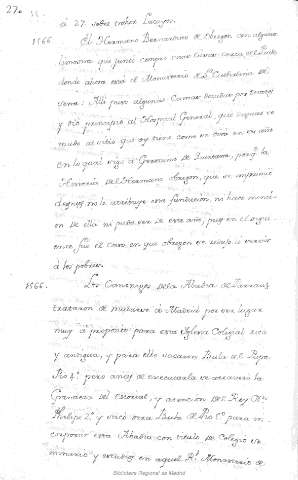 27.
à 27. sobre
1566 El Hermano Bernardino de Obregon con algunas
limosnas que juntó compró unas casas cerca del Prado
donde ahora está el Monasterio de Sta Cathalina de
Sena: Allí puso algunas Camas
y dio principio al Hospital General, que despues se
mudó al sitio que oy tiene como se verá en su año
en lo qual sigo à Geronimo de Quintana, porq. la
Historia del Hermano Obregon, que se imprimió
despues no le atribuye esta fundacion, ni hace mencion
de ella ni pudo ser de este año, pues en el sigui
ente, fue el caso en que Obregon se
à los pobres.
1566. Los Canonigos de la Abadia de Parraces
trataron de mudarse à Madrid por ser lugar
muy à proposito para esta Iglesia Colegial rica
y antigua, y para ello sacaron Bula del Papa
Pio 4º pero antes de executarla se
Grandeza del Escorial, y atencion del Rey Dn
Phelipe 2º y sacó otra Bula de Pio 5º para in
corporar esta Abadia con titulo de Colegio Se
minario y estudios en aquel Rl. Monasterio de
Biblioteca Regional de Madrid